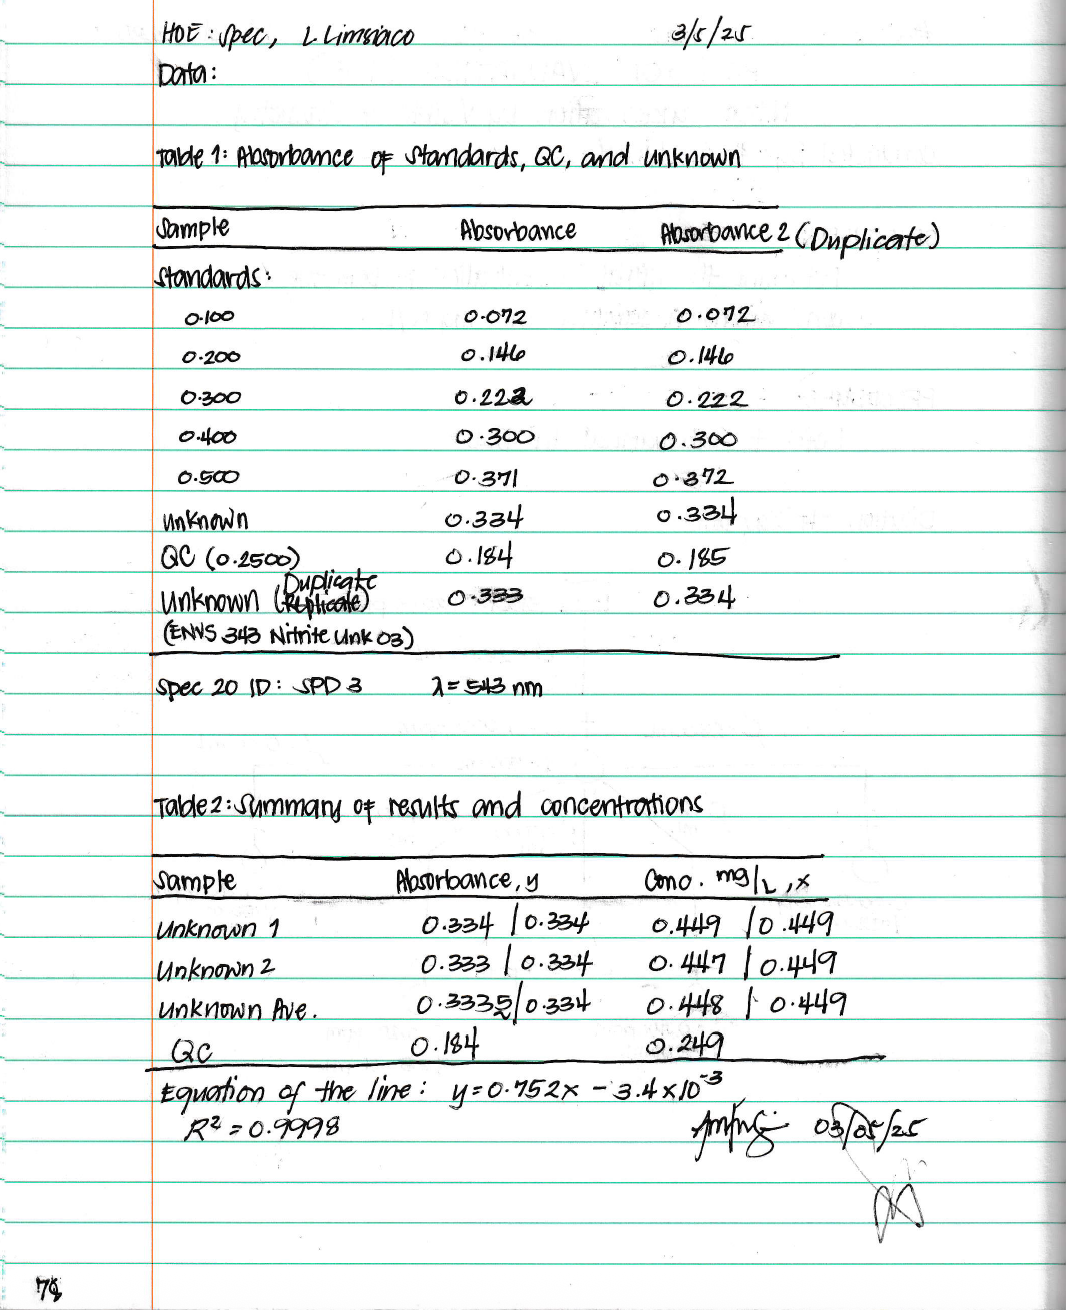 HOE: Spec, L Limsiaco 3/5/25
Data:
Table 1: Absorbance of standards, QC, and unknown
Sample Absorbance Absorbance 2 (Duplicate)
Standards:
0.100 0.072 0.072
0.200 0.146 0.146
0.300 0.222 0.222
0.400 0.300 0.300
0.500 0.371 0.372
Unknown 0.334 0.334
QC (0.2500) 0.184 0.185
Duplicate
Unknown (Replicate) 0.333 0.334
(ENVS 343 Nitrite Unk 03)
Spec 20 ID: SPD 3 λ = 543 nm
Table 2: Summary of results and concentrations
Sample Absorbance, y Conc. mg/L, x
Unknown 1 0.334 / 0.334 0.449 / 0.449
Unknown 2 0.333 / 0.334 0.447 / 0.449
Unknown Ave. 0.3335 / 0.334 0.448 / 0.449
QC 0.184 0.249
Equation of the line: y = 0.752x - 3.4 x 10⁻³
R² = 0.9998 03/05/25